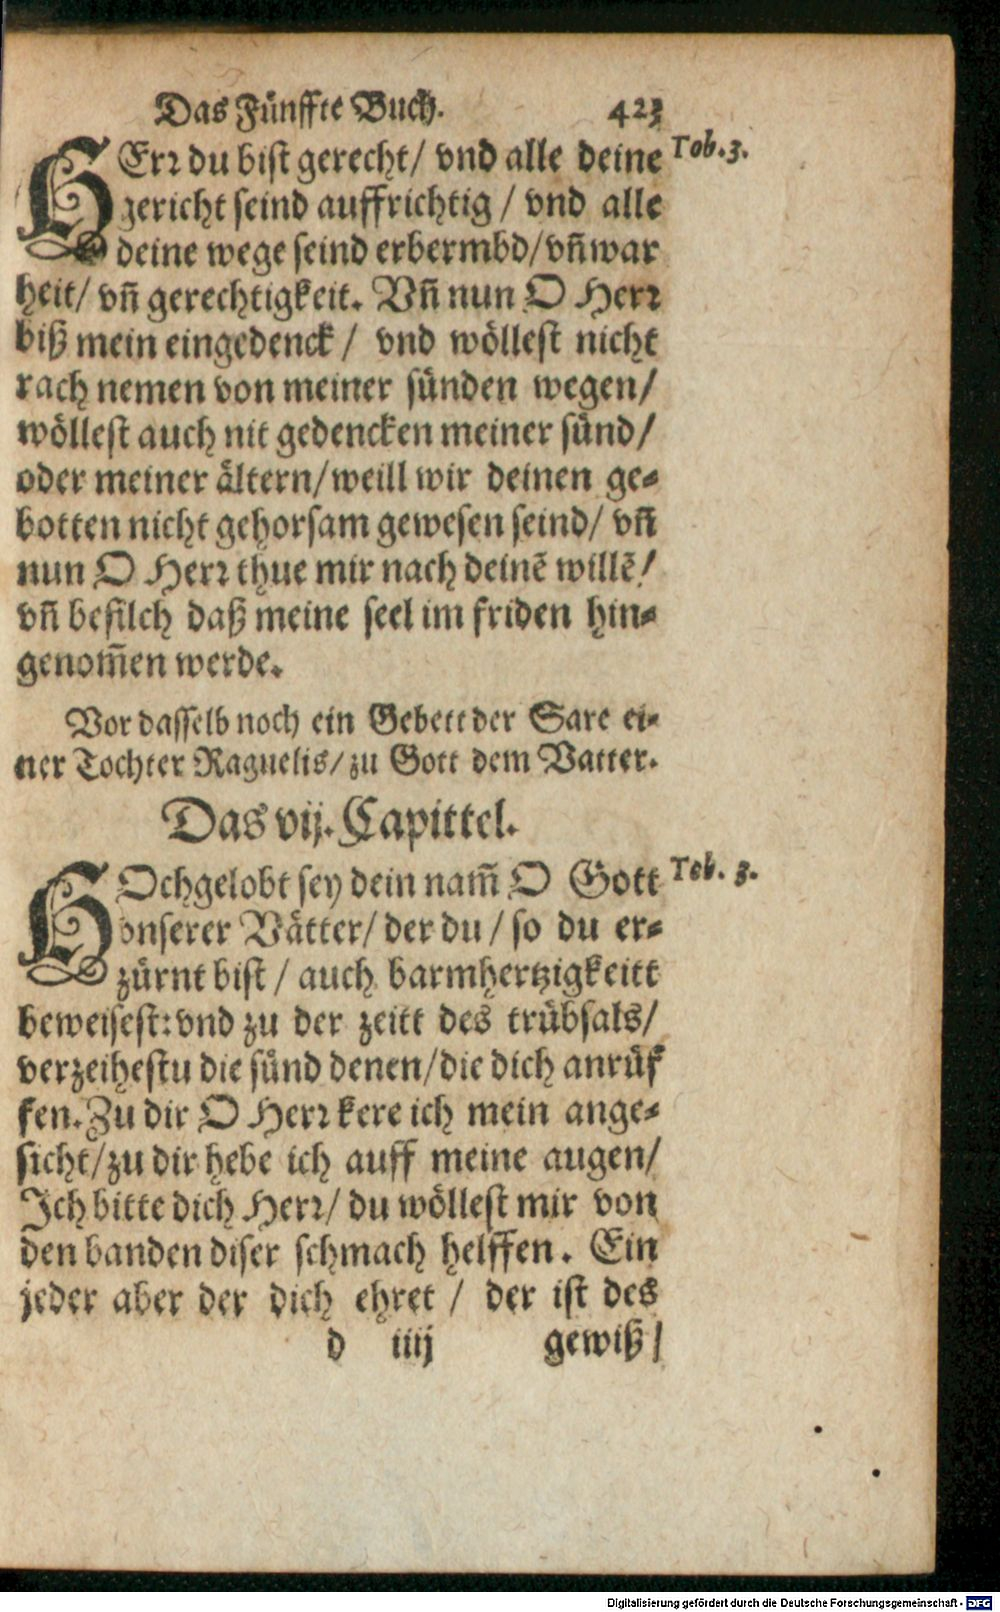 Das Fünffte Buch. 423
HErr du bist gerecht/ vnd alle deine Tob. 3.
gericht seind auffrichtig / vnd alle
deine wege seind erbermbd/ vñ war
heit/ vñ gerechtigkeit. Vñ nun O Herr
biß mein eingedenck / vnd wöllest nicht
rach nemen von meiner sünden wegen/
wöllest auch nit gedencken meiner sünd/
oder meiner ältern/ weill wir deinen ge-
botten nicht gehorsam gewesen seind/ vñ
nun O Herr thue mir nach deinẽ willẽ/
vñ befilch daß meine seel im friden hin-
genom̃en werde.
Vor dasselb noch ein Gebett der Sare ei-
ner Tochter Raguelis/ zu Gott dem Vatter.
Das vij. Capittel.
HOchgelobt sey dein nam̃ O Gott Tob. 3.
vnserer Vätter/ der du / so du er-
zürnt bist / auch barmhertzigkeitt
beweisest: vnd zu der zeitt des trübsals/
verzeihestu die sünd denen/ die dich anrüf
fen. Zu dir O Herr kere ich mein ange-
sicht/ zu dir hebe ich auff meine augen/
Ich bitte dich Herr/ du wöllest mir von
den banden diser schmach helffen. Ein
jeder aber der dich ehret / der ist des
d iiij gewiß/
Digitalisierung gefördert durch die Deutsche Forschungsgemeinschaft - DFG